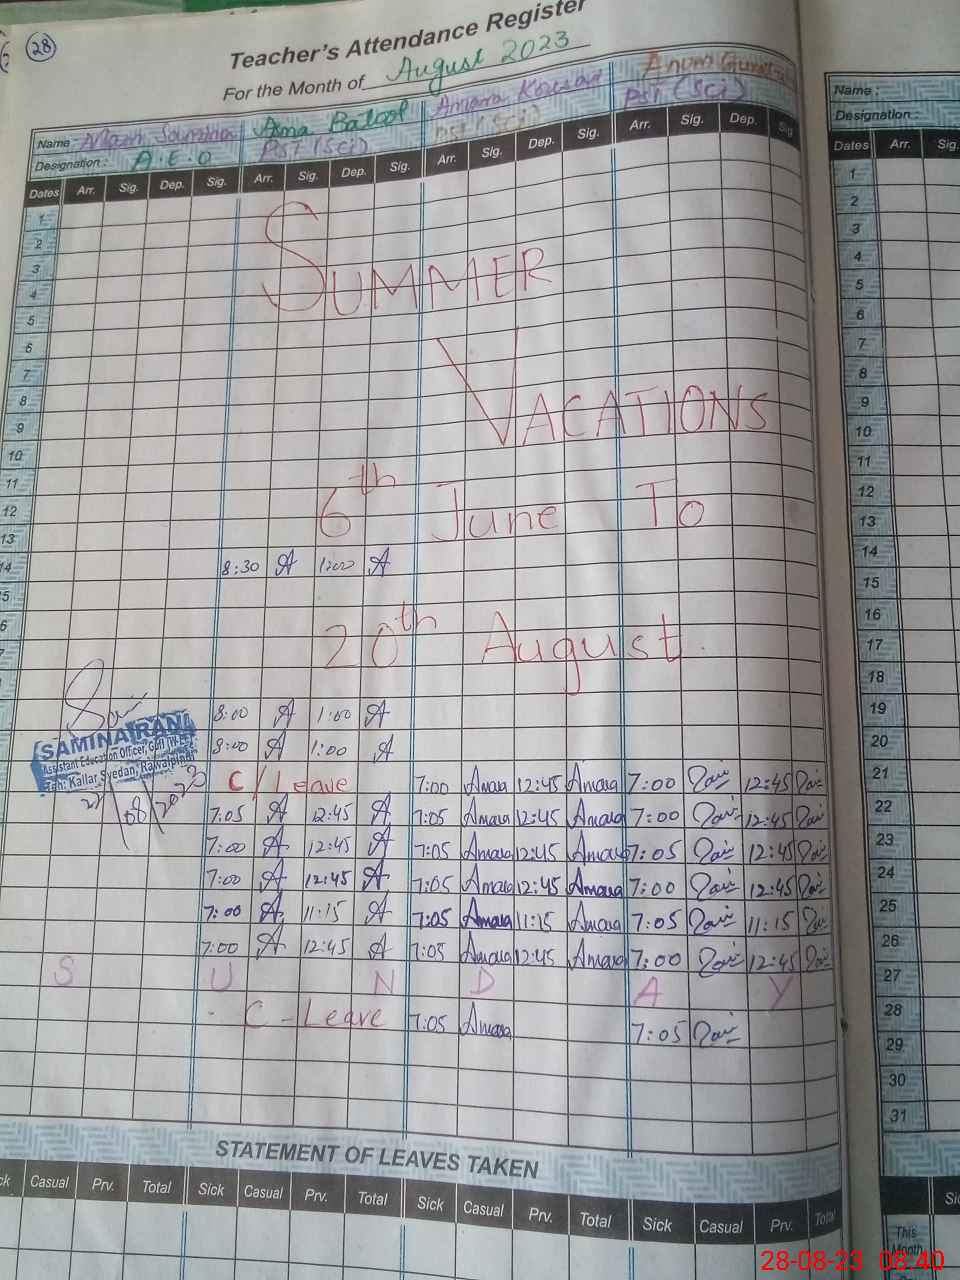 28
Teacher's Attendance Register
For the Month of August 2023
Name : Asma Batool Amara Kousar Anum
Designation : A.E.O PST (Sci) PST (Sci) PST (Sci)
Dates Arr. Sig. Dep. Sig. Arr. Sig. Dep. Sig. Arr. Sig. Dep. Sig. Arr. Sig. Dep. Sig
1
2
3
4
SUMMER
5
6
7
8
9
VACATIONS
10
11
12
13
6th June To
14 8:30 A 1:00 A
15
16
17
20th August
8:00 A 1:00 A
8:00 A 1:00 A
SAMINA RANA
Assistant Education Officer,
Teh: Kallar Syedan, Rawalpindi
21/08/2023
C/Leave 7:00 Amara 12:45 Amara 7:00 12:45
7:05 A 12:45 A 7:05 Amara 12:45 Amara 7:00 12:45
7:00 A 12:45 A 7:05 Amara 12:45 Amara 7:05 12:45
7:00 A 12:45 A 7:05 Amara 12:45 Amara 7:00 12:45
7:00 A 11:15 A 7:05 Amara 11:15 Amara 7:05 11:15
7:00 A 12:45 A 7:05 Amara 12:45 Amara 7:00 12:45
S U N D A Y
C-Leave 7:05 Amara 7:05
STATEMENT OF LEAVES TAKEN
Casual Prv. Total Sick Casual Prv. Total Sick Casual Prv. Total Sick Casual Prv. Total
Name :
Designation :
Dates Arr. Sig.
1
2
3
4
5
6
7
8
9
10
11
12
13
14
15
16
17
18
19
20
21
22
23
24
25
26
27
28
29
30
31
This
Month
28-08-23 08:40